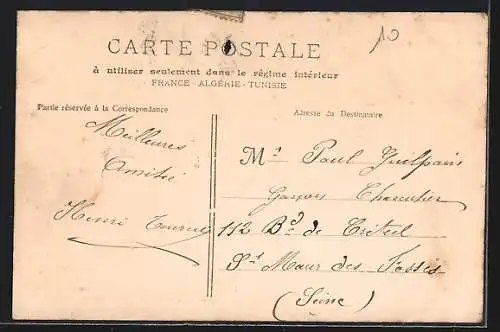 10
CARTE POSTALE
à utiliser seulement dans le régime intérieur
FRANCE - ALGÉRIE - TUNISIE
Partie réservée à la Correspondance
Adresse du Destinataire
Meilleures
Amitiés
Henri
Mr Paul Guilpain
Garçon Charcutier
112 Bd de Créteil
St Maur des Fossés
(Seine)